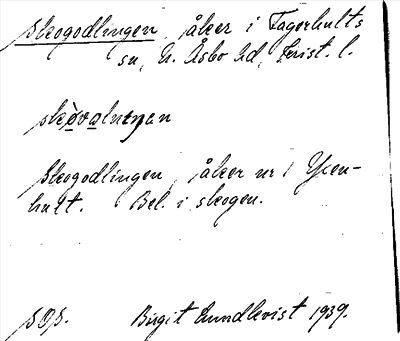 Skogodlingen, åker i Fagerhults
sn, N. Åsbo hd, Krist. l.
Skogodlingen, åker nr 1 Ysen-
hult. Bel. i skogen.
Birgit Lundkvist 1939.